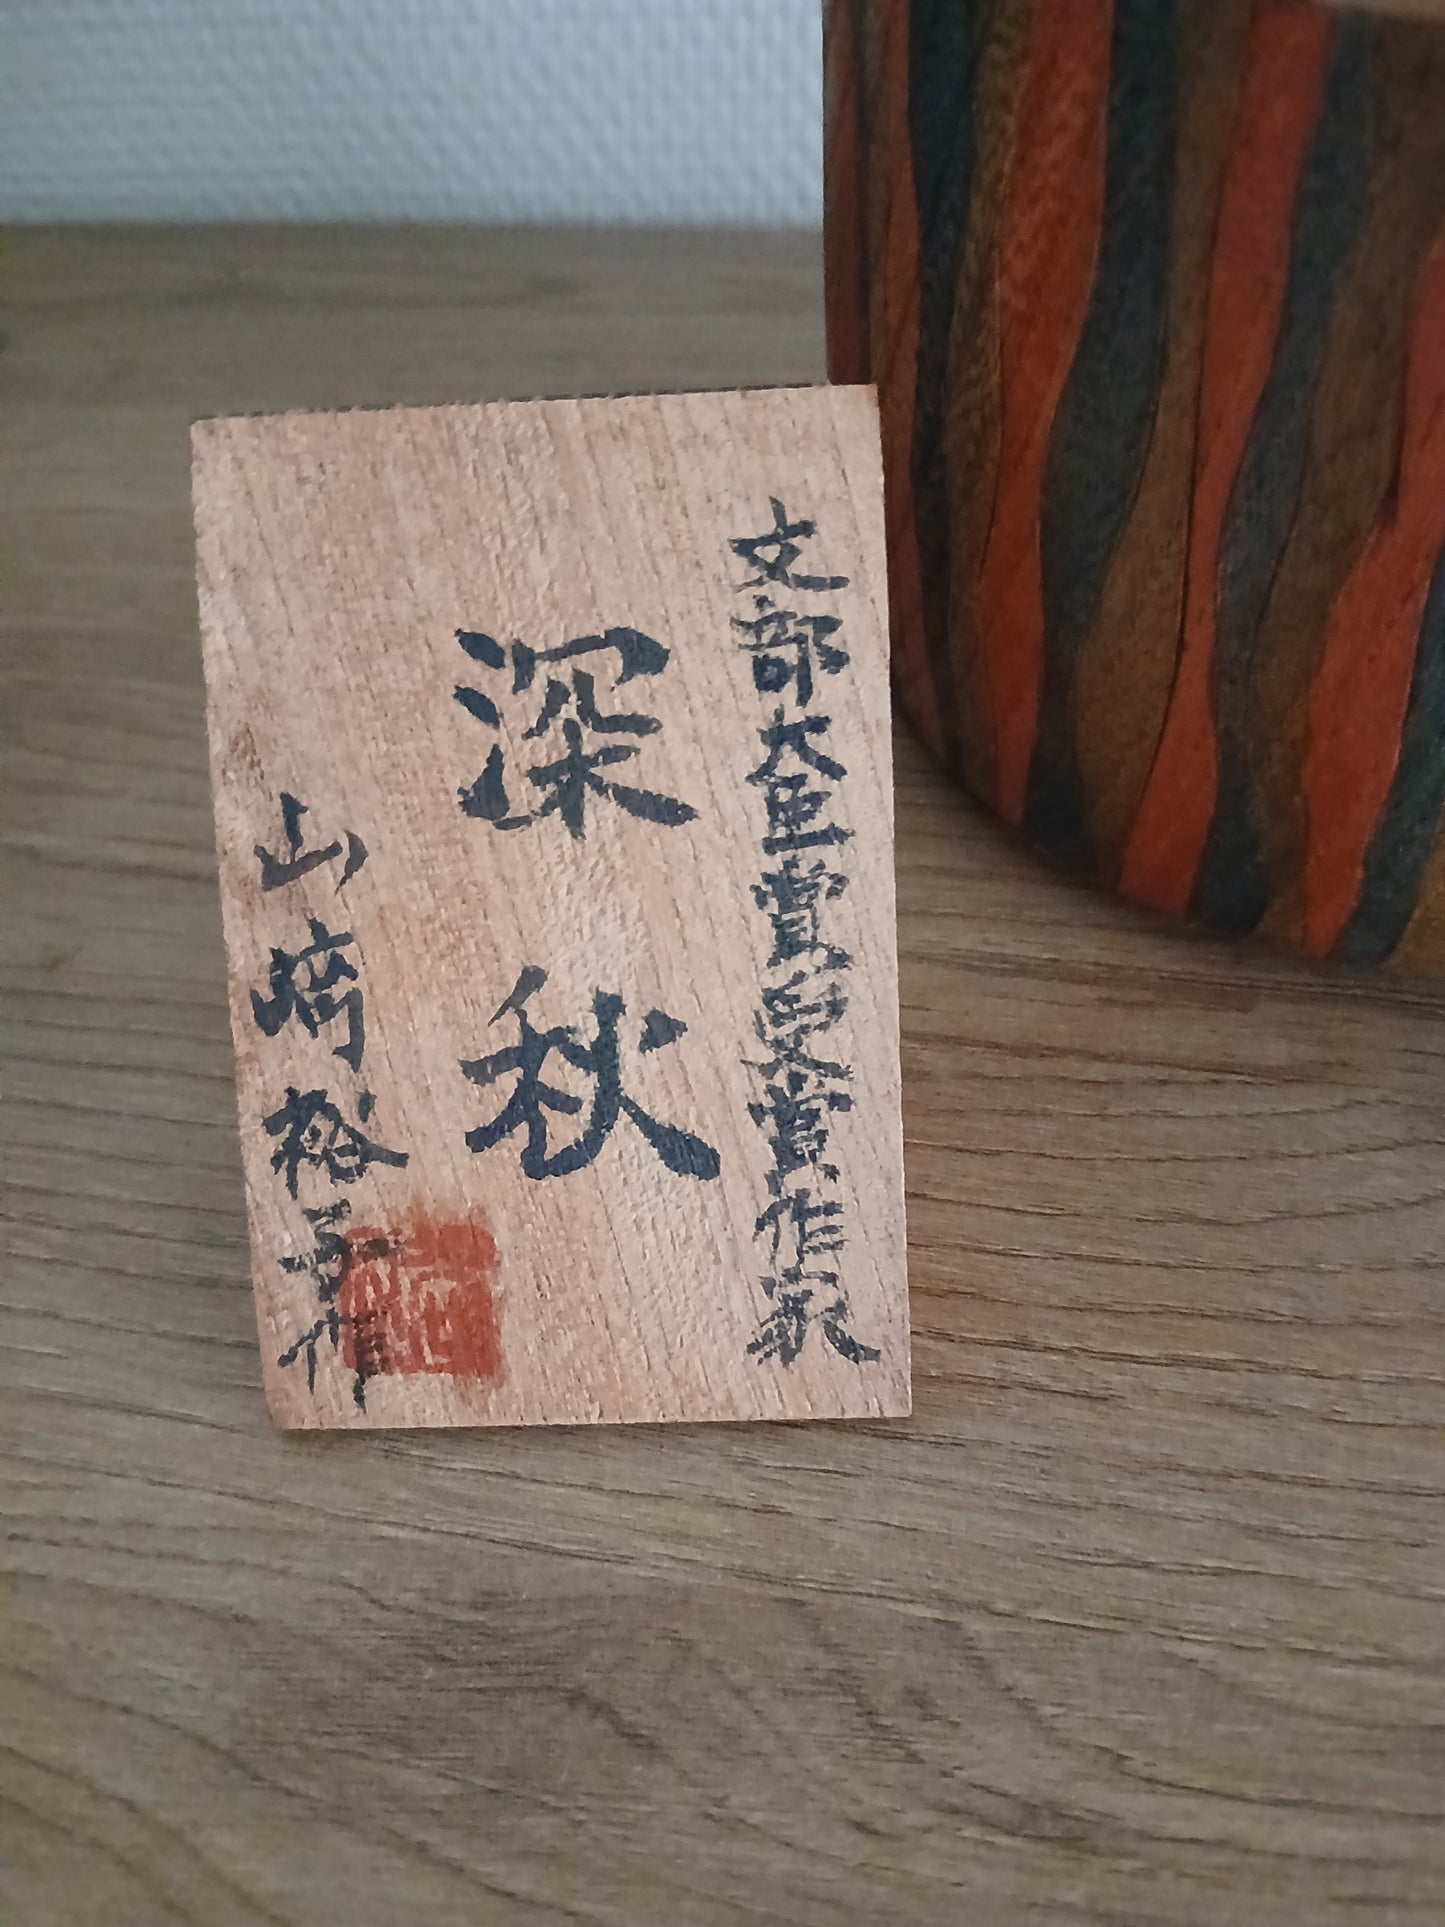 文部大臣賞受賞作家
深秋
山崎裕子作